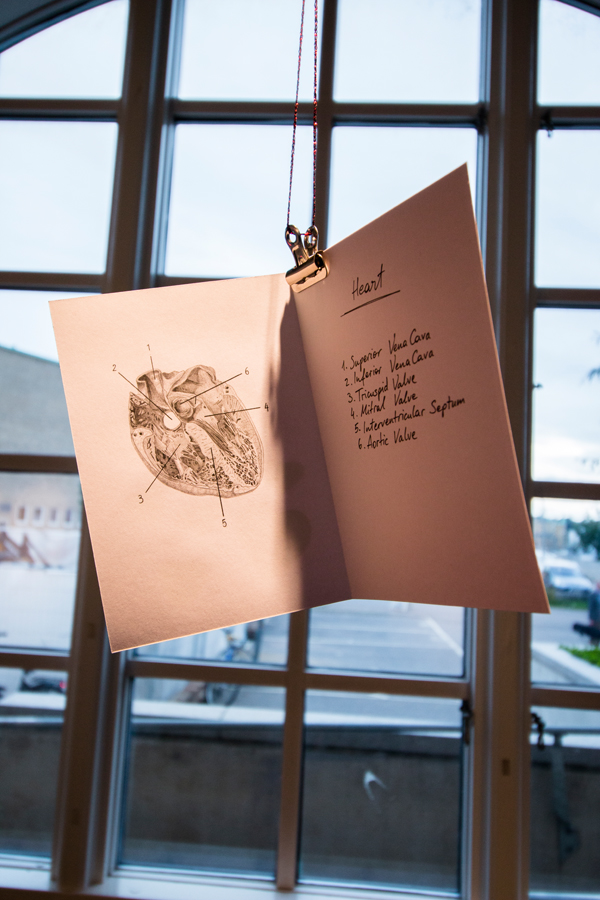 1
2
6
4
3
5
Heart
1. Superior Vena Cava
2. Inferior Vena Cava
3. Tricuspid Valve
4. Mitral Valve
5. Interventricular Septum
6. Aortic Valve